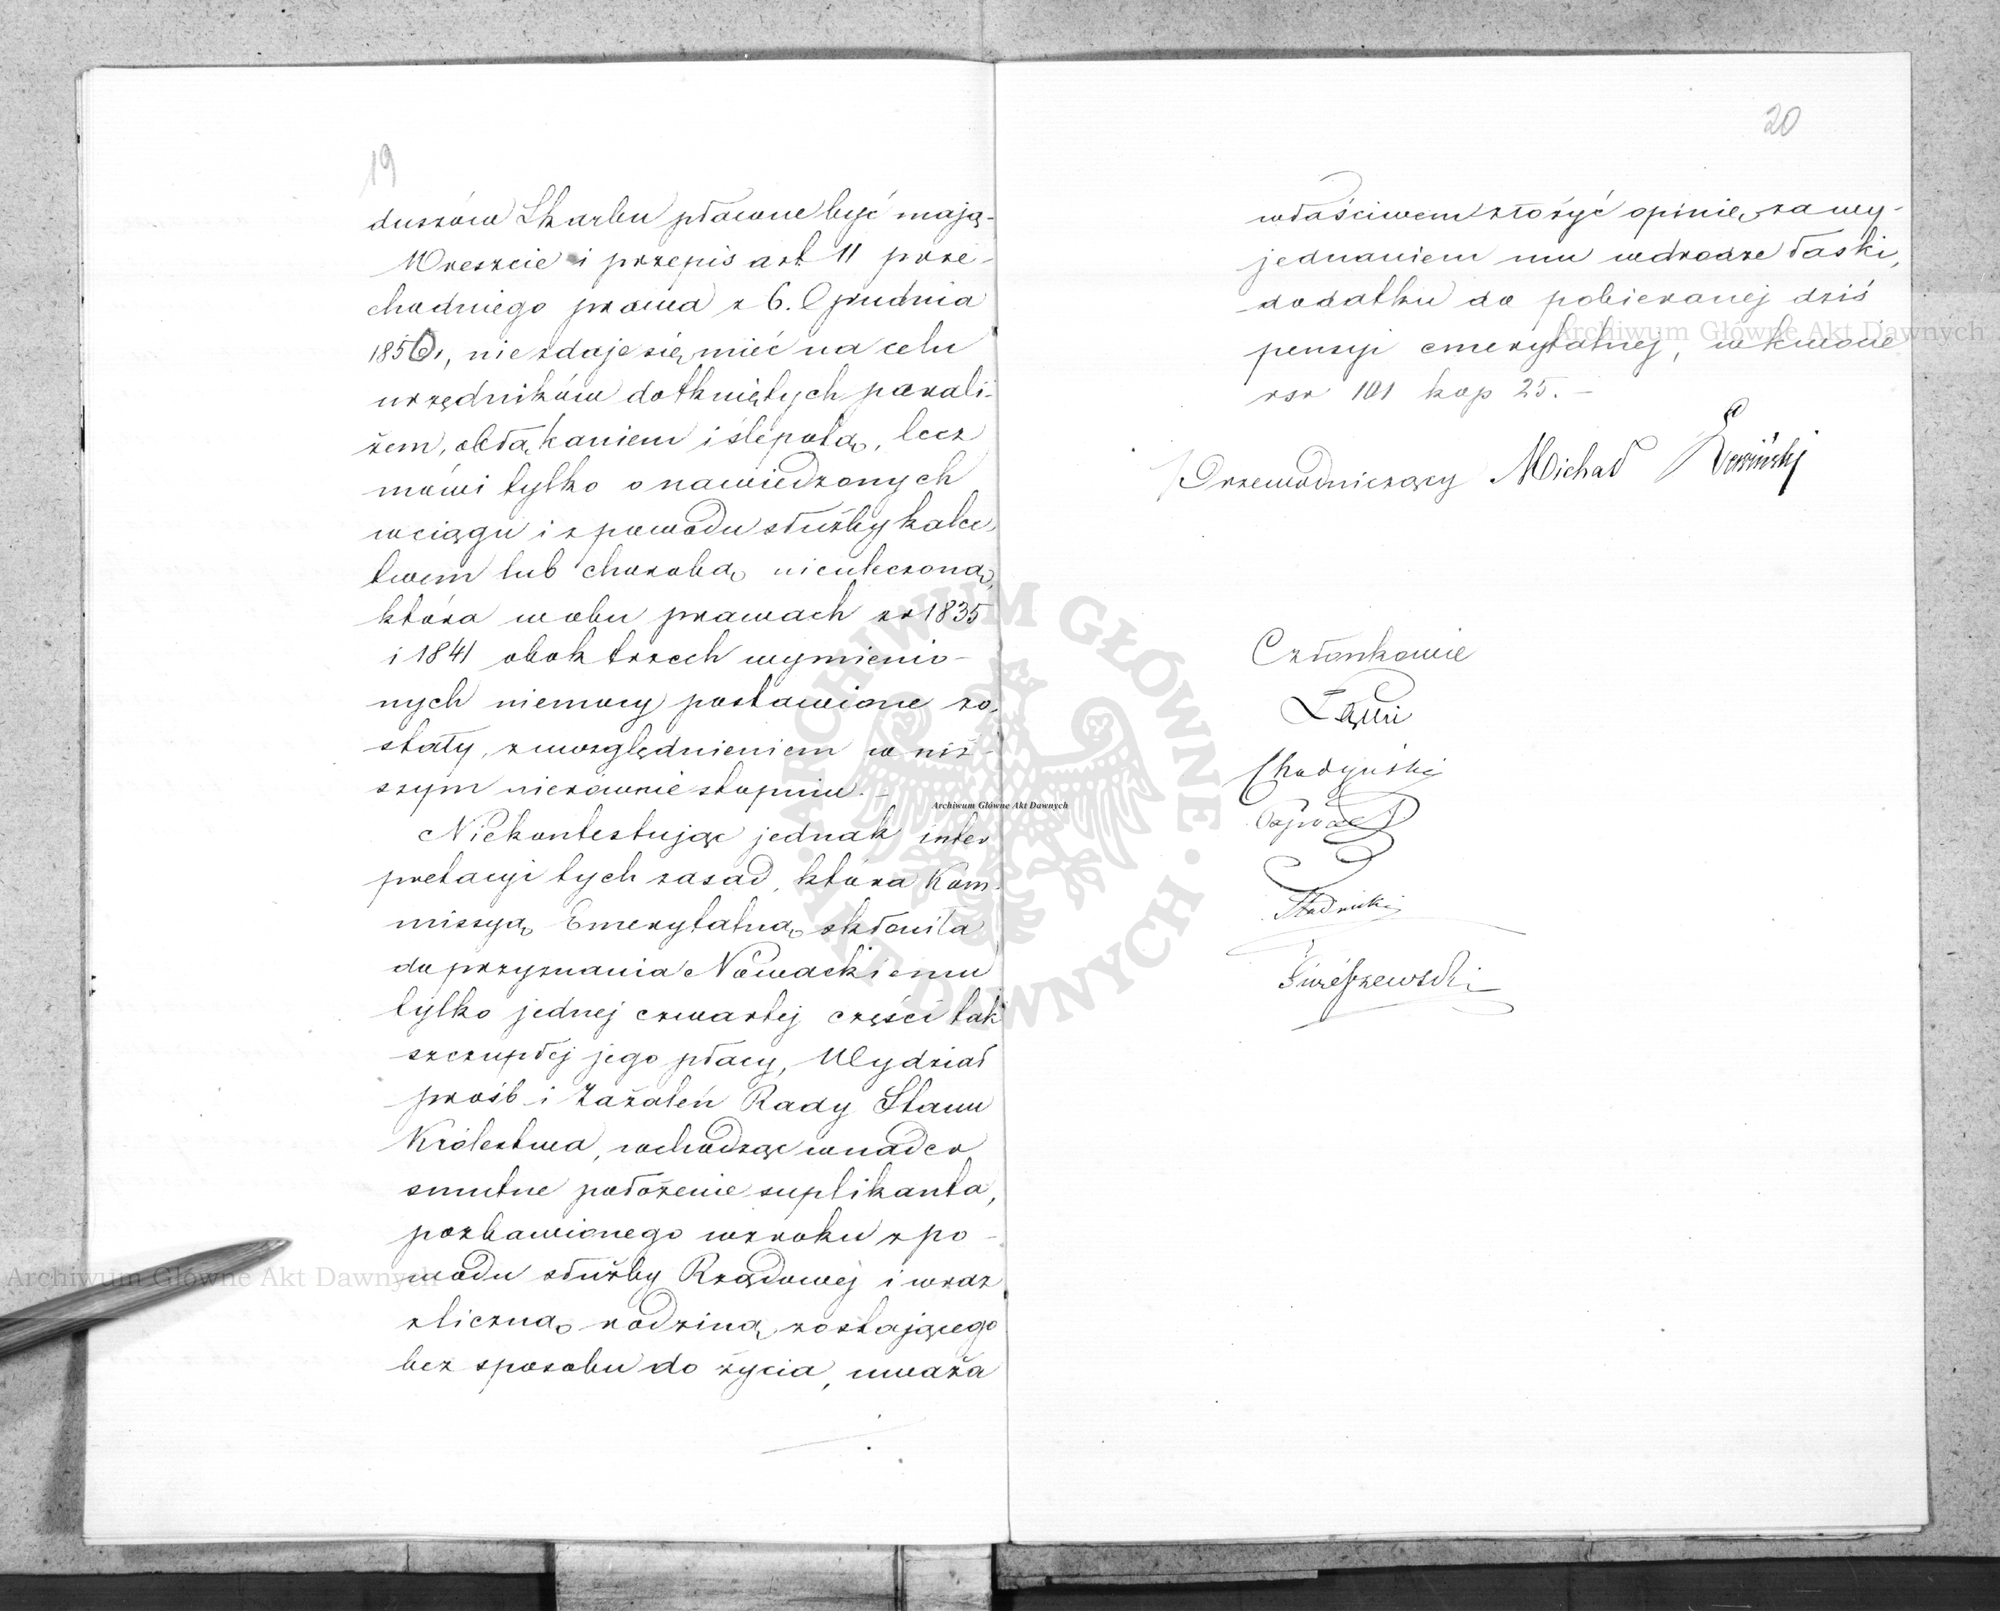 19
duszów Skarbu płacone być mają.
Wreszcie i przepis art 11 prze-
chodniego prawa z 6. Grudnia
1856 r, nie zdaje się mieć na celu
urzędników dotkniętych parali-
żem, obłąkaniem i ślepotą, lecz
mówi tylko o nawiedzonych
w ciągu i z powodu służby kalec-
twem lub chorobą nieuleczoną,
która w obu prawach zr 1835
i 1841 obok trzech wymienio-
nych niemocy postawione zo-
stały, z uwzględnieniem w niż-
szym nierównie stopniu. –
Niekontestując jednak inter
pretacyi tych zasad, która Kom-
missyą Emerytalną skłoniła
do przyznania Nowackiemu
tylko jednej czwartej części tak
szczupłej jego płacy, Wydział
próśb i Zażaleń Rady Stanu
Królestwa, wchodząc w nader
smutne położenie suplikanta,
pozbawionego wzroku z po-
wodu służby Rządowej i wraz
z liczną rodziną zostającego
bez sposobu do życia, uważa
20
właściwem złożyć opinię, za wy-
jednaniem mu w drodze łaski,
dodatku do pobieranej dziś
pensyi emerytalnej, w kwocie
rsr 101 kop 25. –
Przewodniczący Michał
Członkowie
Łąski
Chodyński
Stadnicki
Archiwum Główne Akt Dawnych
Archiwum Główne Akt Dawnych
Archiwum Główne Akt Dawnych
ARCHIWUM GŁÓWNE AKT DAWNYCH